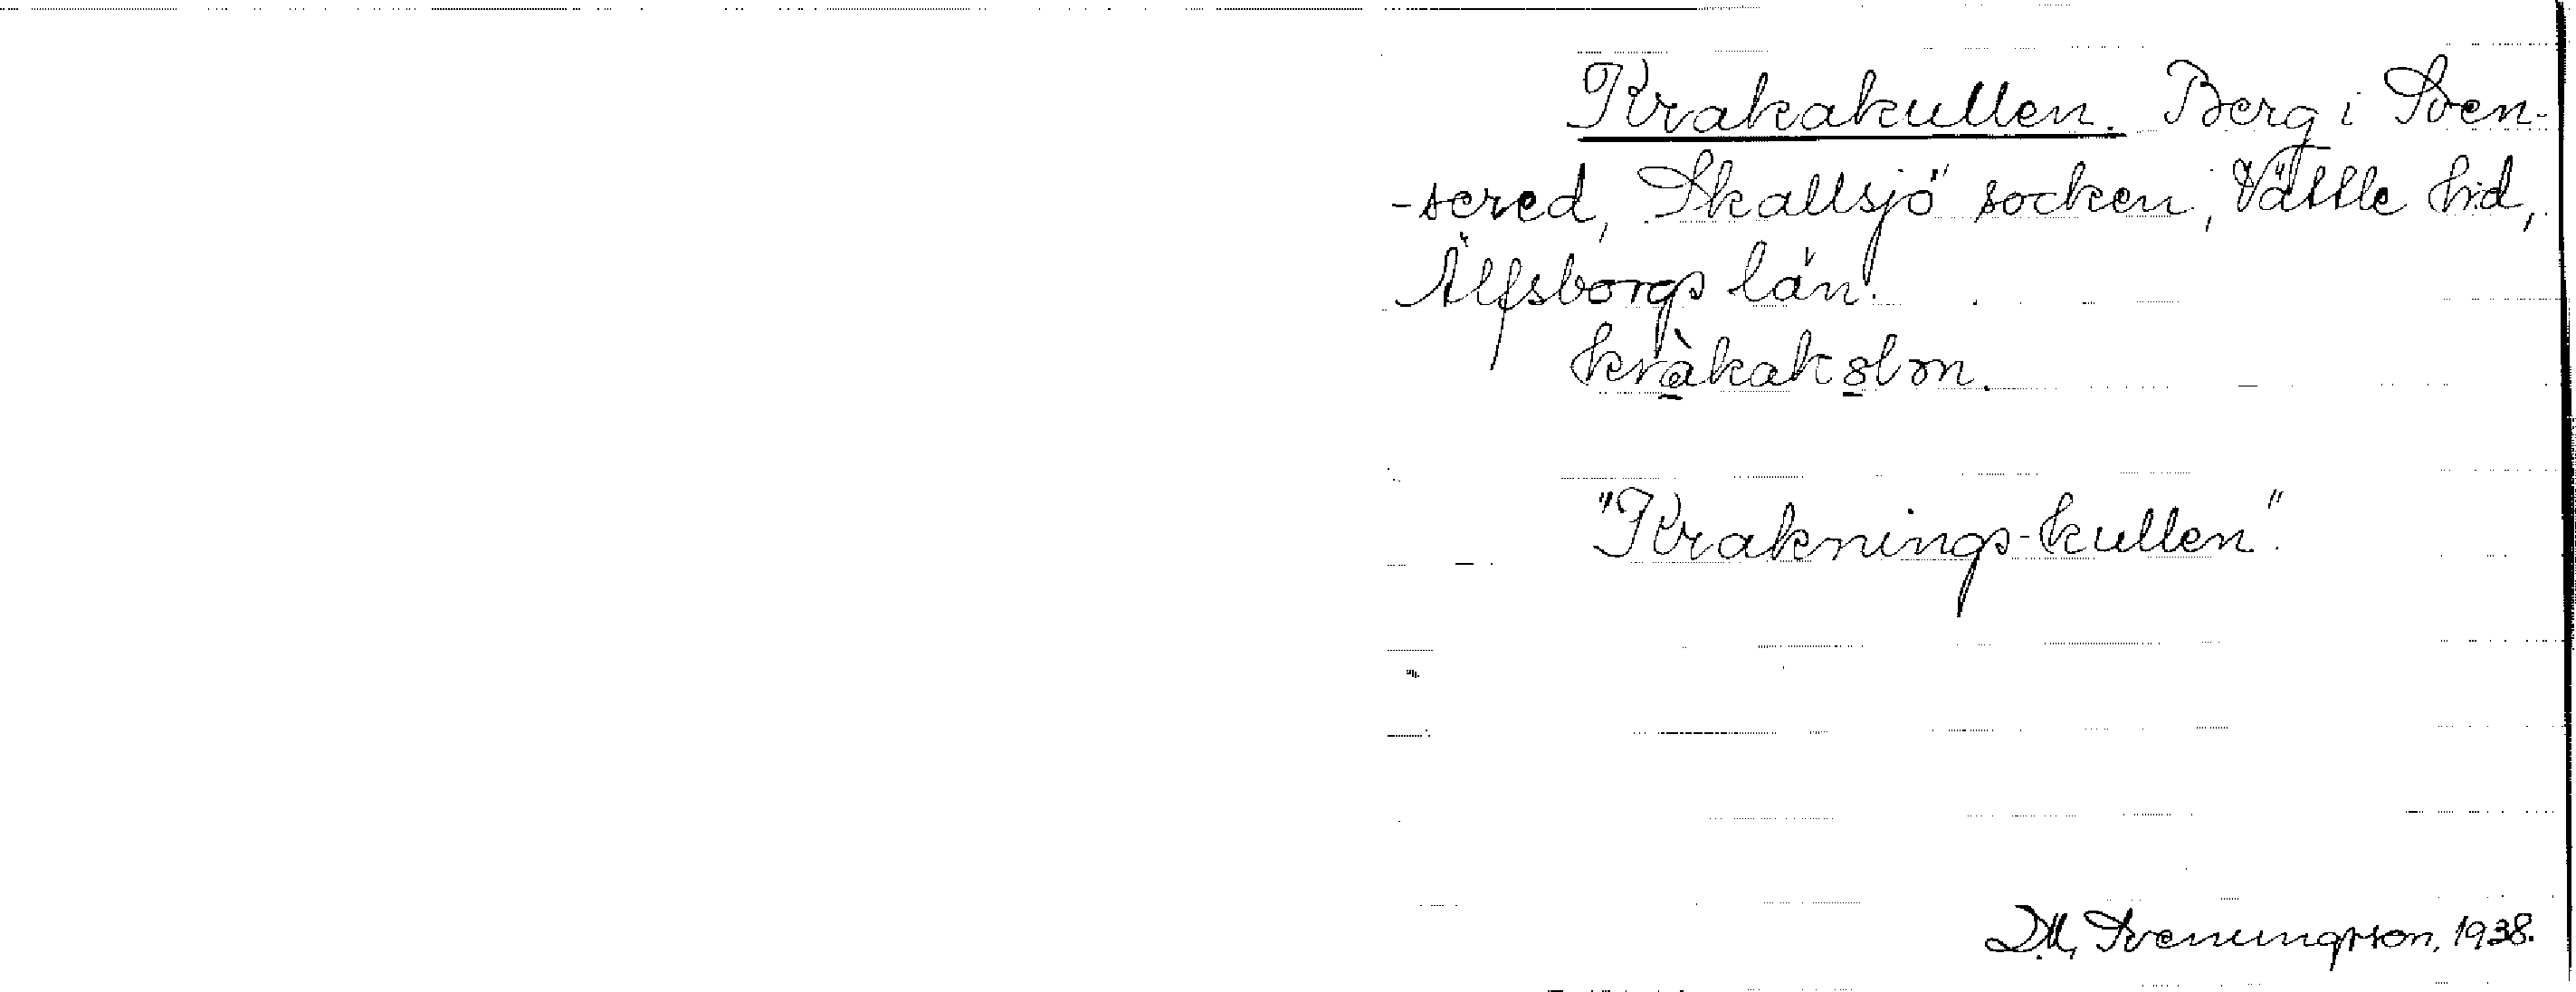 Krakakullen. Berg i Sven-
-sered, Skallsjö socken, Vättle hd,
Älfsborgs län.
"Kraknings-kullen".
D.M. Sveningsson, 1938.